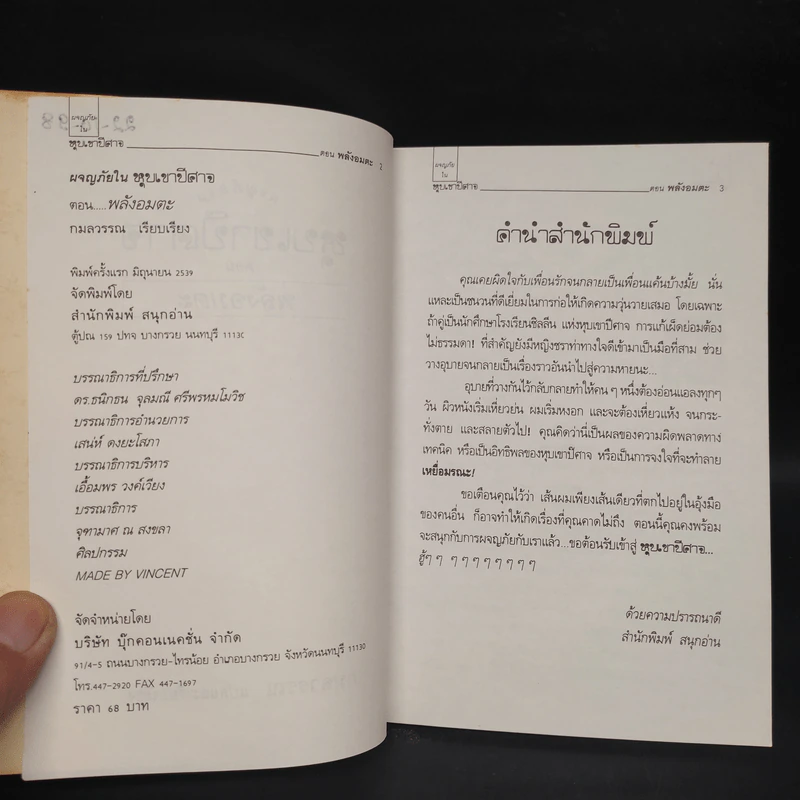 ผจญภัย
ใน
หุบเขาปีศาจ
ตอน พลังอมตะ 2
ผจญภัยใน หุบเขาปีศาจ
ตอน.....พลังอมตะ
กมลวรรณ เรียบเรียง
พิมพ์ครั้งแรก มิถุนายน 2539
จัดพิมพ์โดย
สำนักพิมพ์ สนุกอ่าน
ตู้ปณ 159 ปทจ บางกรวย นนทบุรี 11130
บรรณาธิการที่ปรึกษา
ดร.ธนิกธน จุลมณี ศรีพรหมโมวิช
บรรณาธิการอำนวยการ
เสน่ห์ ตงยะโสภา
บรรณาธิการบริหาร
เอื้อมพร วงค์เวียง
บรรณาธิการ
จุฑามาศ ณ สงขลา
ศิลปกรรม
MADE BY VINCENT
จัดจำหน่ายโดย
บริษัท บุ๊กคอนเนคชั่น จำกัด
91/4-5 ถนนบางกรวย-ไทรน้อย อำเภอบางกรวย จังหวัดนนทบุรี 11130
โทร.447-2920 FAX 447-1697
ราคา 68 บาท
ผจญภัย
ใน
หุบเขาปีศาจ
ตอน พลังอมตะ 3
คำนำสำนักพิมพ์
คุณเคยผิดใจกับเพื่อนรักจนกลายเป็นเพื่อนแค้นบ้างมั้ย นั่น
แหละเป็นชนวนที่ดีเยี่ยมในการก่อให้เกิดความวุ่นวายเสมอ โดยเฉพาะ
ถ้าคู่เป็นนักศึกษาโรงเรียนชิลลีน แห่งหุบเขาปีศาจ การแก้เผ็ดย่อมต้อง
ไม่ธรรมดา! ที่สำคัญยังมีหญิงชราท่าทางใจดีเข้ามาเป็นมือที่สาม ช่วย
วางอุบายจนกลายเป็นเรื่องราวอันนำไปสู่ความหายนะ...
อุบายที่วางกันไว้กลับกลายทำให้คน ๆ หนึ่งต้องอ่อนแอลงทุกๆ
วัน ผิวหนังเริ่มเหี่ยวย่น ผมเริ่มหงอก และจะต้องเหี่ยวแห้ง จนกระ-
ทั่งตาย และสลายตัวไป! คุณคิดว่านี่เป็นผลของความผิดพลาดทาง
เทคนิค หรือเป็นอิทธิพลของหุบเขาปีศาจ หรือเป็นการจงใจที่จะทำลาย
เหยื่อมรณะ!
ขอเตือนคุณไว้ว่า เส้นผมเพียงเส้นเดียวที่ตกไปอยู่ในอุ้งมือ
ของคนอื่น ก็อาจทำให้เกิดเรื่องที่คุณคาดไม่ถึง ตอนนี้คุณคงพร้อม
จะสนุกกับการผจญภัยกับเราแล้ว...ขอต้อนรับเข้าสู่ หุบเขาปีศาจ...
ฮู้ๆ ๆ ๆ ๆ ๆ ๆ ๆ ๆ ๆ
ด้วยความปรารถนาดี
สำนักพิมพ์ สนุกอ่าน